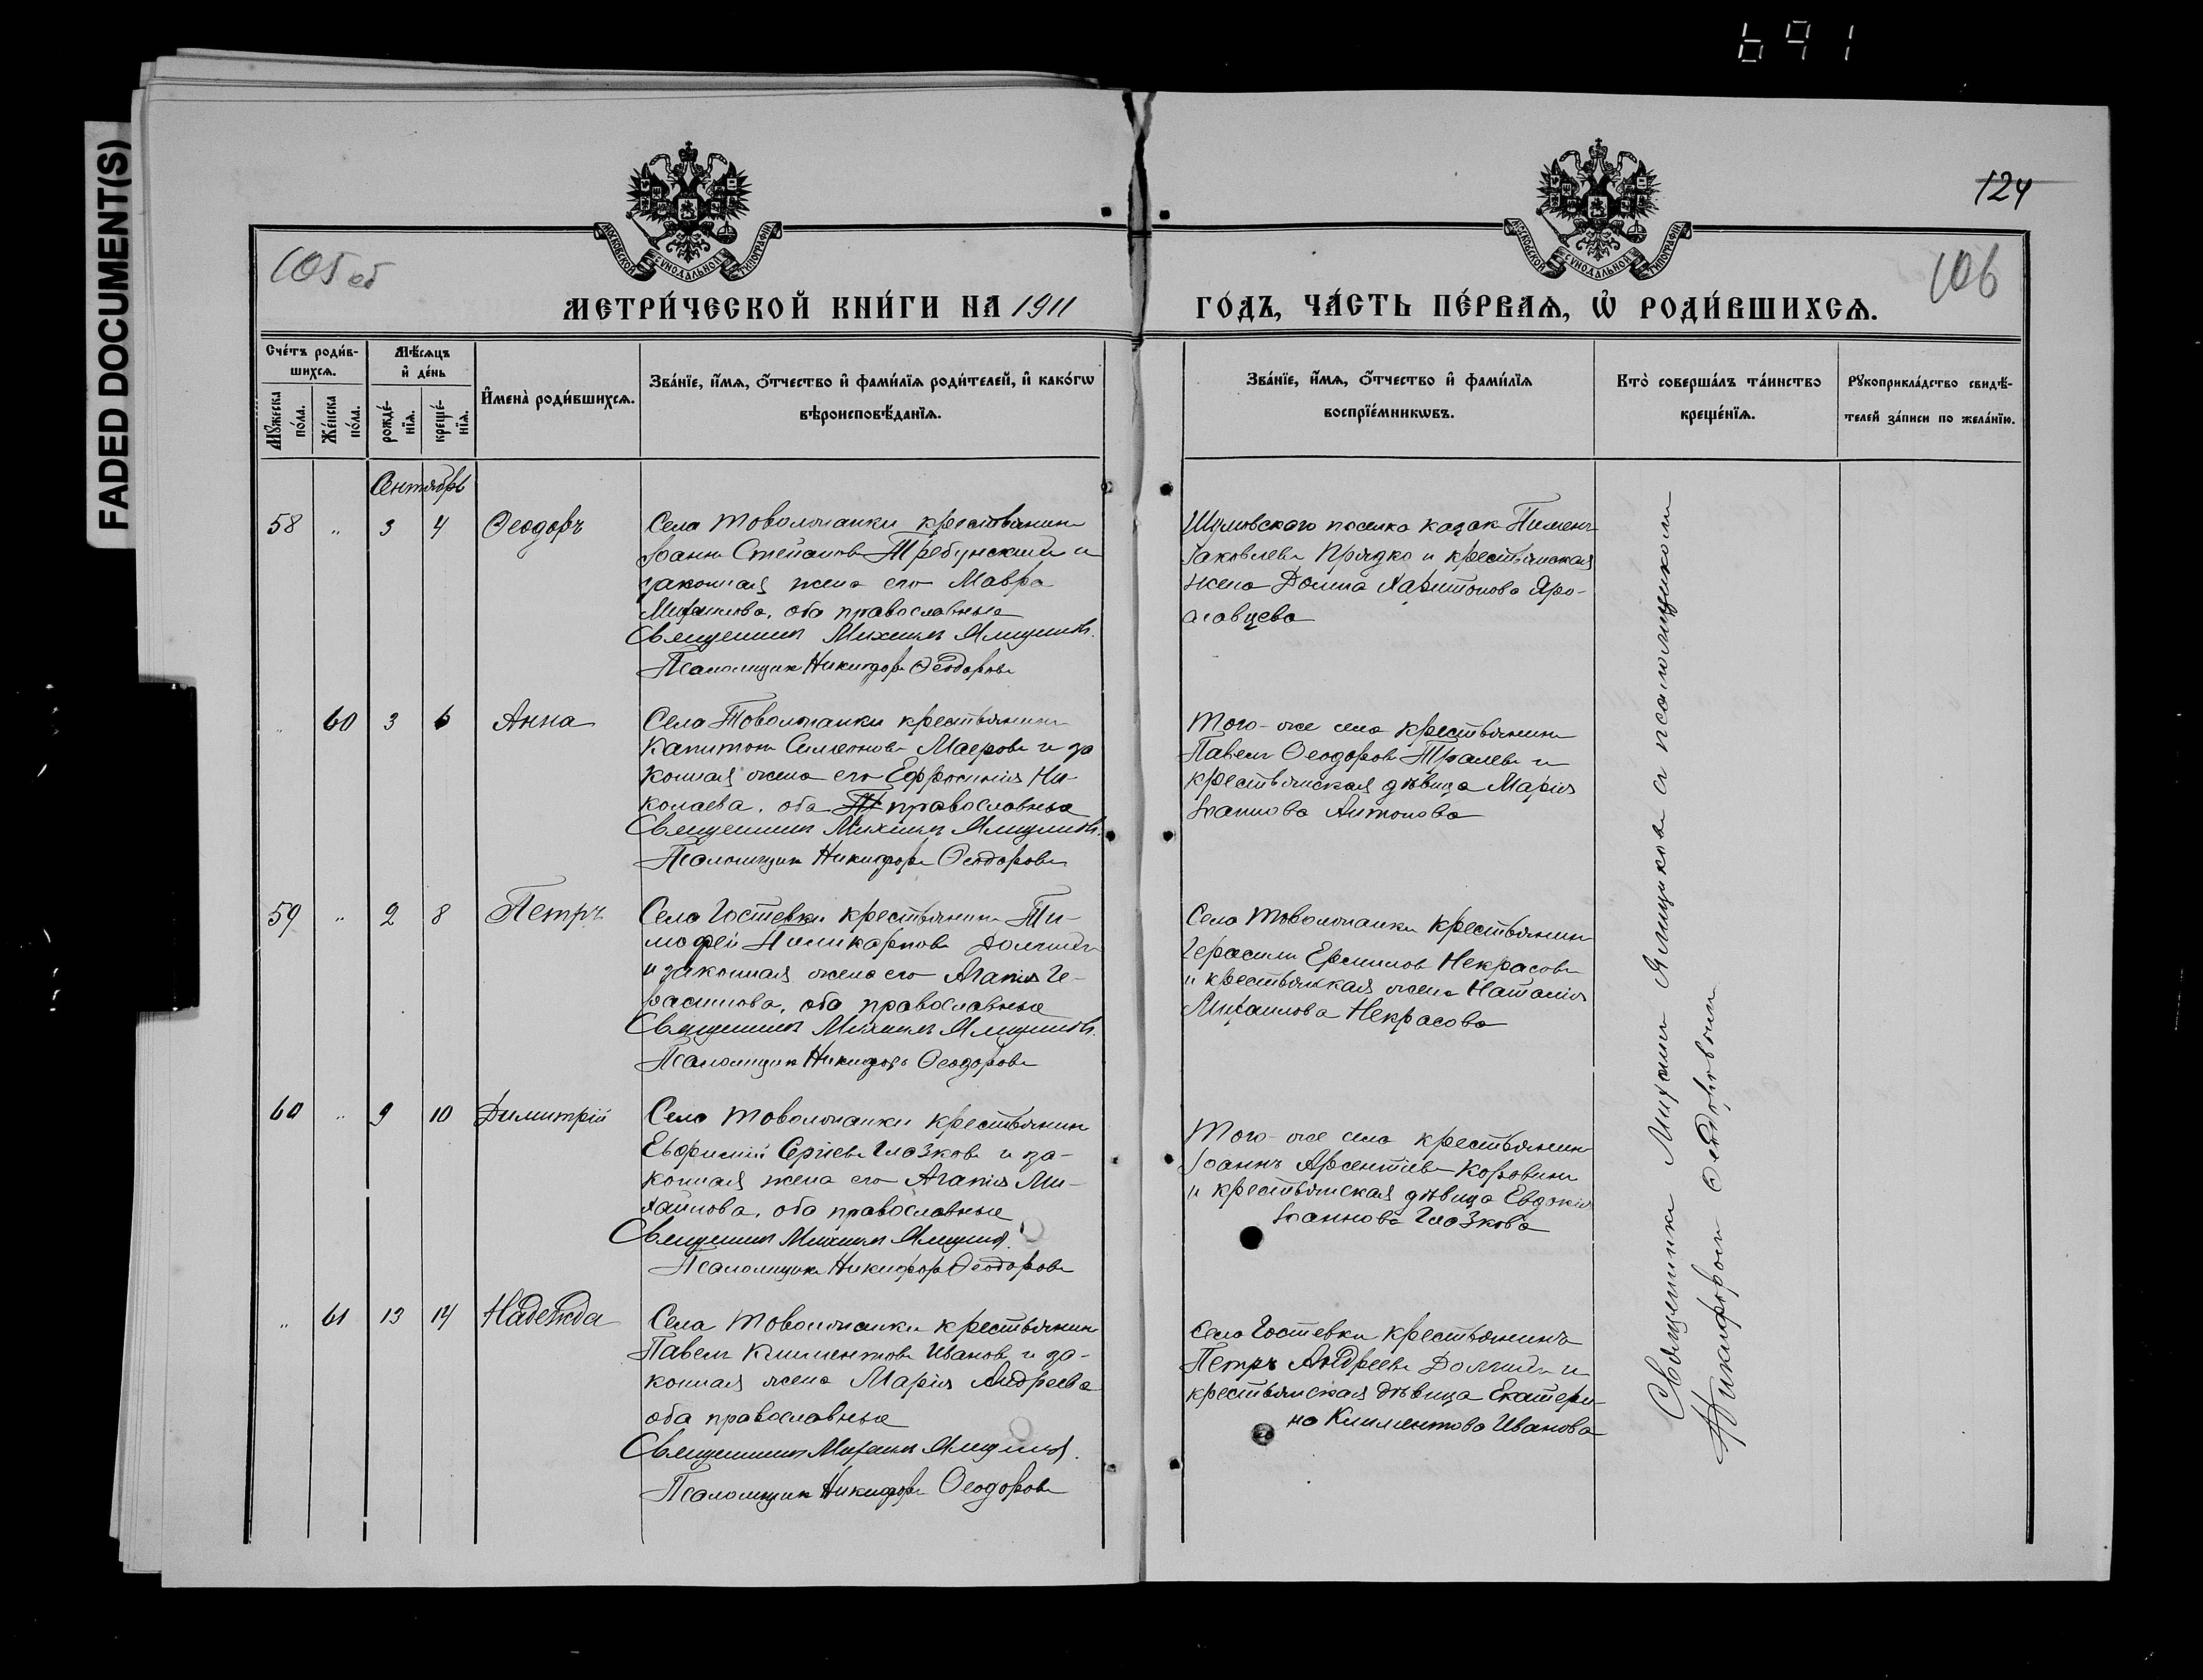 FADED DOCUMENT(S)
691
124
105 об
106
МОСКОВСКОЙ СѴНОДАЛЬНОЙ ТИПОГРАФІИ
МОСКОВСКОЙ СѴНОДАЛЬНОЙ ТИПОГРАФІИ
МЕТРИ́ЧЕСКОЙ КНИ́ГИ НА 1911 ГО́ДЪ, ЧА́СТЬ ПЕ́РВАѦ, Ѡ҆ РОДИ́ВШИХСѦ.
Сче́тъ роди́в-
шихсѧ.
Мꙋ́жеска по́ла.
Же́нска по́ла.
Мѣ́сѧцъ
и҆ де́нь
рожде́-
нїѧ.
креще́-
нїѧ.
И҆мена̀ роди́вшихсѧ.
Зва́нїе, и҆́мѧ, ѻ҆́тчество и҆ фами́лїѧ роди́телей, и҆ како́гѡ
вѣроисповѣ́данїѧ.
Зва́нїе, и҆́мѧ, ѻ҆́тчество и҆ фами́лїѧ
воспрїе́мникѡвъ.
Кто̀ соверша́лъ та́инство
креще́нїѧ.
Рꙋкоприкла́дство свидѣ́-
телей за́писи по жела́нїю.
Сентябрь
58 " 3 4 Ѳеодоръ
Села Товолжанки крестьянинъ
Іоаннъ Стефановъ Требунскій и
законная жена его Мавра
Михаилова, оба православные
Священникъ Михаилъ
Псаломщикъ Никифоръ Ѳеодоровъ
поселка казак Пименъ
Іаковлевъ Прядко и крестьянская
жена Домна Харитонова Яро-
славцева
" 60 3 6 Анна
Села Товолжанки крестьянинъ
Капитонъ Симеоновъ Маеровъ и за
конная жена его Ефросинія Ни-
колаева, оба православные
Священникъ Михаилъ
Псаломщикъ Никифоръ Ѳеодоровъ
Того-же села крестьянинъ
Павелъ Ѳеодоровъ Тралевъ и
крестьянская дѣвица Марія
Іоаннова Антонова
59 " 2 8 Петръ
Села Гостевки крестьянинъ Ти-
мофей Поликарповъ Долгихъ
и законная жена его Агапія Ге-
расимова, оба православные
Священникъ Михаилъ
Псаломщикъ Никифоръ Ѳеодоровъ
Села Товолжанки крестьянинъ
Герасимъ Ермиловъ Некрасовъ
и крестьянская жена Наталія
Михаилова Некрасова
60 " 9 10 Димитрій
Села Товолжанки крестьянинъ
Евфимій Сергіевъ Глазковъ и за-
конная жена его Агапія Ми-
хаилова, оба православные
Священникъ Михаилъ
Псаломщикъ Никифоръ Ѳеодоровъ
Того-же села крестьянинъ
Іоаннъ Арсентіевъ Коровинъ
и крестьянская дѣвица Евдокія
Іоаннова Глазкова
" 61 13 14 Надежда
Села Товолжанки крестьянинъ
Павелъ Климентовъ Ивановъ и за-
конная жена Марія Андреева
оба православные
Священникъ Михаилъ
Псаломщикъ Никифоръ Ѳеодоровъ
Села Гостевки крестьянинъ
Петръ Андреевъ Долгихъ и
крестьянская дѣвица Екатери-
на Климентова Иванова
Священникъ Михаилъ с псаломщикомъ
Никифоромъ Ѳеодоровымъ